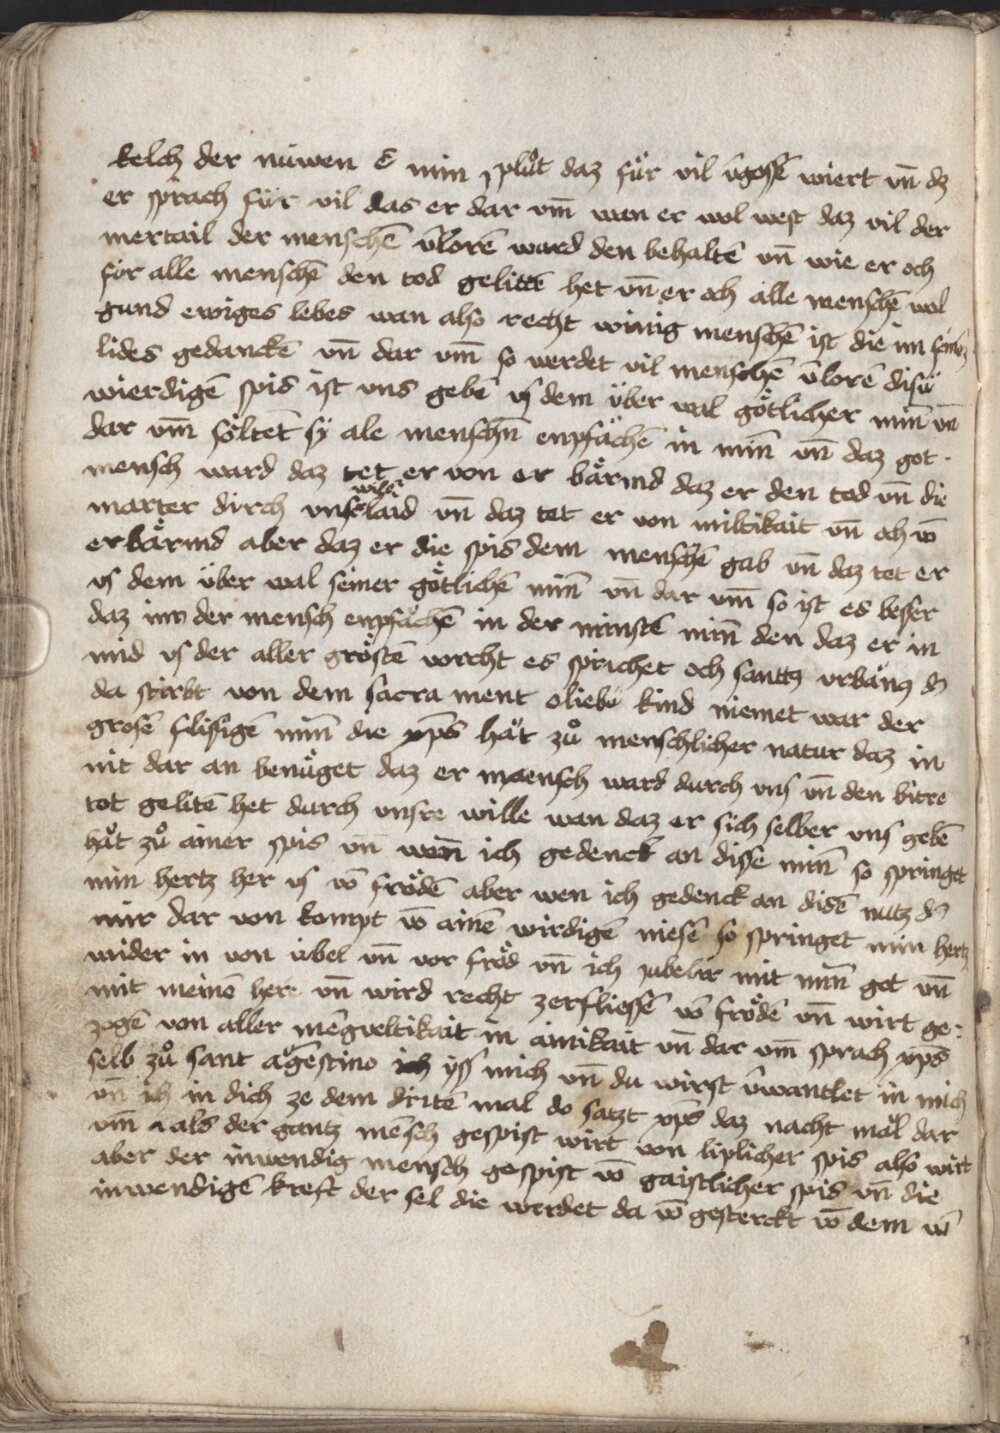 kelch der nüwen E min pluͦt daz für vil v̄gossē wiert vn̄ dz
er sprach für vil das er dar vm̄ wan er wol west daz vil der
mertail der menschē v̄lorē ward den behaltē vn̄ wie er och
for alle menschē den tod gelittē het vn̄ er och alle menschē wol
gund ewiges lebes wan also recht winig menschē ist die im sines
lides gedanckē vn̄ dar vm̄ so werdet vil menschē v̄lorē disü
wierdigē spis ist vns gebē vs dem über wal götlicher min̄ vn̄
dar vm̄ söltet sy ale menschn̄ enpfächē in min̄ vn̄ daz got
mensch ward daz tet er von er bärmd daz er den tod vn̄ die
marter dirch vnser laid vn̄ daz tet er von miltikait vn̄ och vō
erbärmd aber daz er die spis dem menschē gab vn̄ daz tet er
vs dem über wal seiner götlichē min̄ vn̄ dar vm̄ so ist es besser
daz inn der mensch enpfächē in der minstē min̄ den daz er in
mid vs der aller gröstē vorcht es sprichet och santtz vrbang d̄
da stirbt von dem sacra ment o liebü kind niemet war der
grosē flisigē min̄ die xp̄s hät zuͦ menschlicher natur daz in
nit dar an benüget daz er mensch ward durch vns vn̄ den bitre
tot gelitē het durch vnsre wille wan daz er sich selber vns gebē
hät zuͦ ainer spis vn̄ wen̄ ich gedenck an disse min̄ so springet
min hertz her vs vō frödē aber wen ich gedenck an disē nutz d̄
mir dar von kompt vō ainē wirdigē niesē so springet min hertz
wider in von übel vn̄ vor fröd vn̄ ich jubelir mit min̄ got vn̄
mit meinē her vn̄ wird recht zerfliessē vō frödē vn̄ wirt ge:
zogē von aller mēgveltikait in ainikait vn̄ dar vm̄ sprach xp̄s
selb zuͦ sant agestino ich yss mich vn̄ du wirst v̄wantlet in mich
vn̄ ich in dich ze dem dritē mal do satzt xp̄s daz nacht mäl dar
vm̄ als der gantz mēsch gespist wirt von liplicher spis also wirt
aber der inwendig mensch gespist vō gaistlicher spis vn̄ die
inwendigē kreft der sel die werdet da vō gesterckt vō dem wī